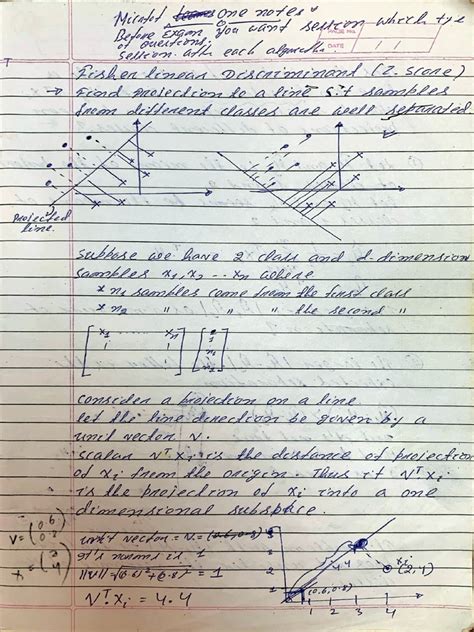 one notes
Before Exam you want session which type
of questions,
session after each algorithm.
PAGE NO.
DATE
Fisher linear Discriminant (2. score)
→ Find projection to a line s.t samples
from different classes are well separated
projected
line.
suppose we have 2 class and d-dimension
samples x1, x2 --- xn where
* n1 samples come from the first class
* n2 " " " the second "
x1 xn
consider a projection on a line
let the line direction be given by a
unit vector v.
scalar vᵀxi is the distance of projection
of xi from the origin. Thus it vᵀxi
is the projection of xi into a one
dimensional subspace.
unit vector = v =
it's norm is 1
= 1
vᵀ.xi = 4.4
4.4
xi
(0.6, 0.8)
1 2 3 4